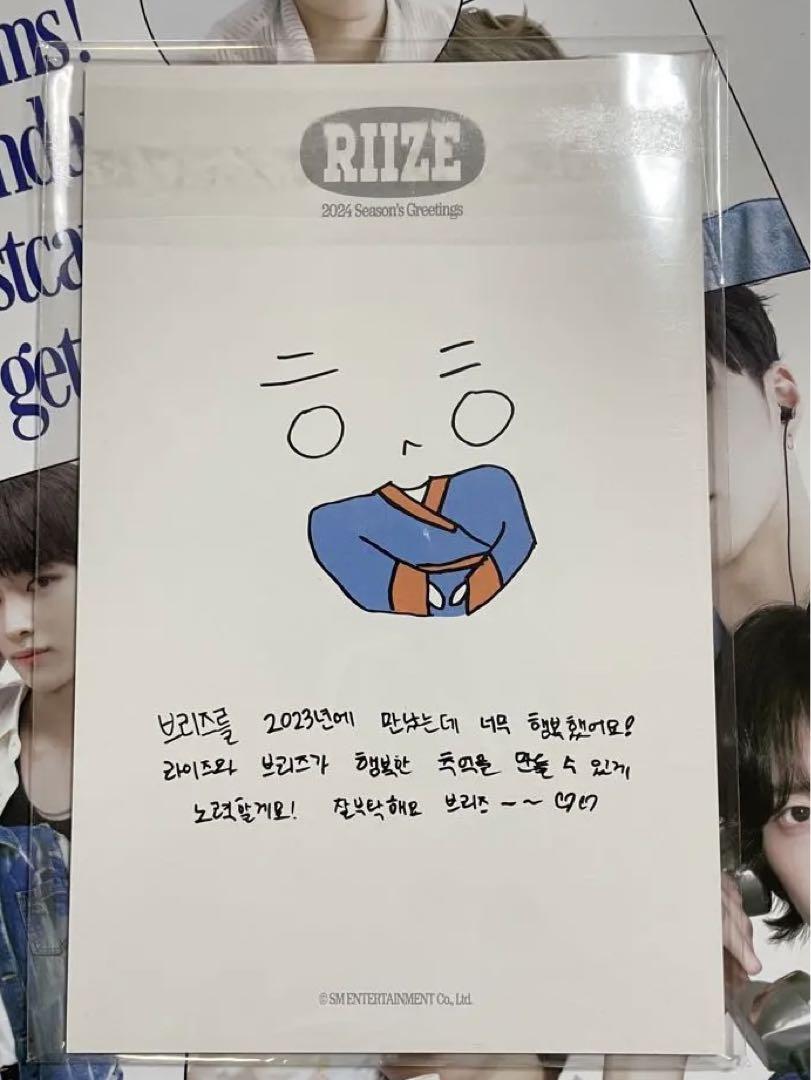 ms!
nde
stca
get
RIIZE
2024 Season's Greetings
브리즈를 2023년에 만났는데 너무 행복했어요!
라이즈와 브리즈가 행복한 추억을 만들 수 있게
노력할게요! 잘부탁해요 브리즈 ~ ~ ♡♡
© SM ENTERTAINMENT Co., Ltd.